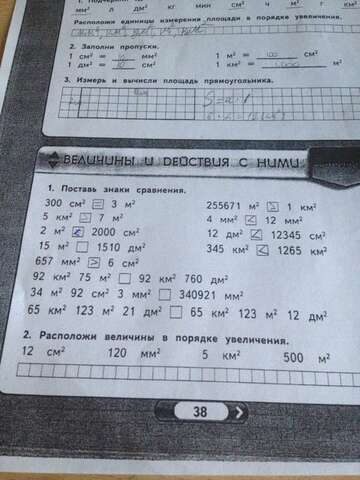 Расположи единицы измерения площади в порядке увеличения.
2. Заполни пропуски.
1 см² = мм² 1 м² = 100 см²
1 дм² = 10 см² 1 км² = 1000 м²
3. Измерь и вычисли площадь прямоугольника.
ВЕЛИЧИНЫ И ДЕЙСТВИЯ С НИМИ
1. Поставь знаки сравнения.
300 см² = 3 м² 255671 м² > 1 км²
5 км² > 7 м² 4 мм² < 12 мм²
2 м² < 2000 см² 12 дм² < 12345 см²
15 м² □ 1510 дм² 345 км² < 1265 км²
657 мм² > 6 см²
92 км² 75 м² □ 92 км² 760 дм²
34 м² 92 см² 3 мм² □ 340921 мм²
65 км² 123 м² 21 дм² □ 65 км² 123 м² 12 дм²
2. Расположи величины в порядке увеличения.
12 см² 120 мм² 5 км² 500 м²
38